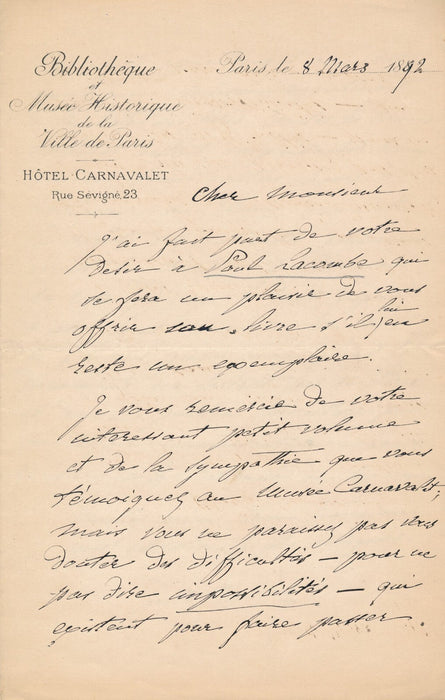 Bibliothèque
et
Musée Historique
de la
Ville de Paris
HÔTEL CARNAVALET
Rue Sévigné, 23
Paris, le 8 Mars 1892
Cher Monsieur
J'ai fait part de votre
désir à Paul Lacombe qui
se fera un plaisir de vous
offrir son livre s'il lui en
reste un exemplaire.
Je vous remercie de votre
intéressant petit volume
et de la sympathie que vous
témoignez au Musée Carnavalet,
mais vous ne paraissez pas vous
douter des difficultés – pour ne
pas dire impossibilités – qui
existent pour faire passer